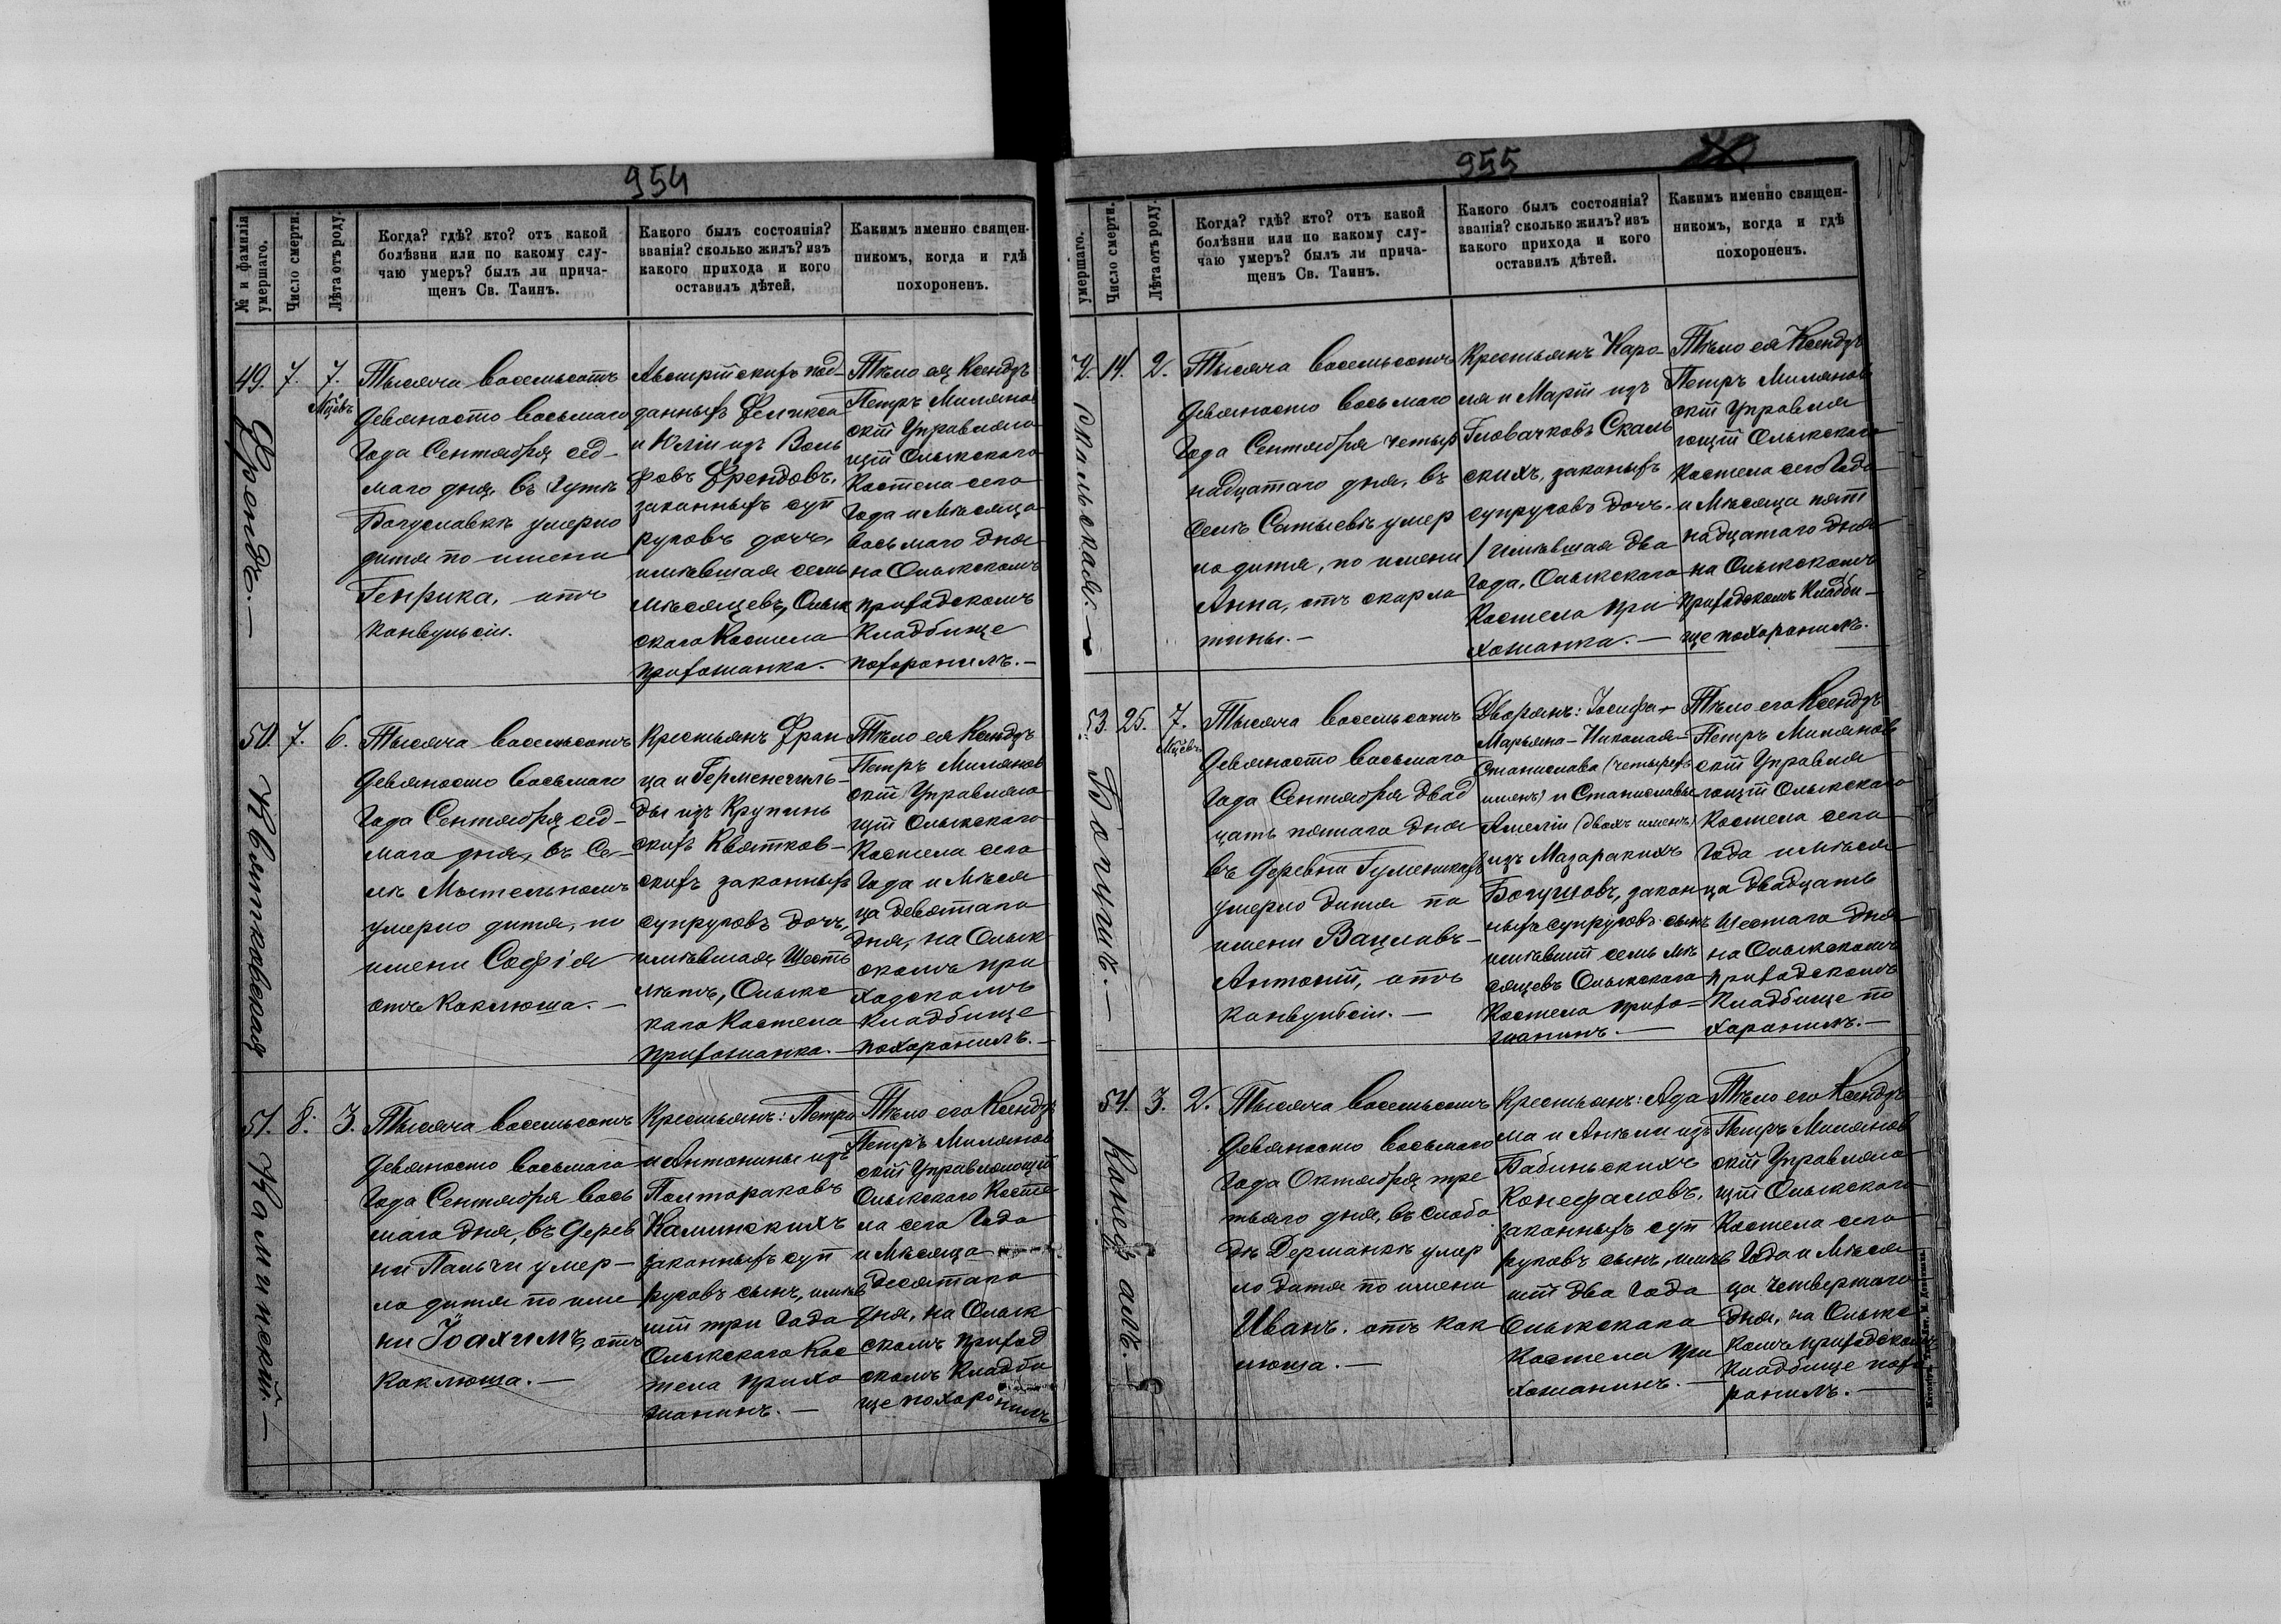 954
№ и фамилія умершаго.
Число смерти.
Лѣта отъ роду.
Когда? гдѣ? кто? отъ какой
болѣзни или по какому слу-
чаю умеръ? былъ ли прича-
щенъ Св. Таинъ.
Какого былъ состоянія?
званія? сколько жилъ? изъ
какого прихода и кого
оставилъ дѣтей.
Какимъ именно священ-
никомъ, когда и гдѣ
похороненъ.
49.
Френде.—
7.
7.
Мцевъ
Тысяча восемьсотъ
девяносто восьмаго
Года Сентября сед-
маго дня, въ Гутѣ
Богуславкѣ умерло
дитя по имени
Генрика, отъ
конвульсіи.
Австрійскихъ под-
данныхъ Феликса
и Юліи изъ Воль
фовъ Френдовъ,
законныхъ суп
руговъ дочь,
имѣвшая семь
мѣсяцевъ, Олык
скаго Костела
прихожанка.—
Тѣло ея Ксендзъ
Петръ Милянов
скій Управляю
щій Олыкскаго
Костела сего
Года и Мѣсяца
восьмаго дня
на Олыкскомъ
приходскомъ
кладбище
похоронилъ.—
50.
Квятковская
7.
6.
Тысяча восемьсотъ
девяносто восьмаго
Года Сентября сед-
маго дня, въ Се-
лѣ Мстельномъ
умерло дитя, по
имени Софія
отъ коклюша.—
Крестьянъ Фран
ца и Герменегиль-
ды изъ Крупинь
скихъ Квятков-
скихъ законныхъ
супруговъ дочь,
имѣвшая шесть
лѣтъ, Олыкс
каго Костела
прихожанка.—
Тѣло ея Ксендзъ
Петръ Милянов
скій Управляю
щій Олыкскаго
Костела сего
Года и Мѣся
ца девятаго
дня, на Олык
скомъ при
ходскомъ
кладбище
похоронилъ.—
51.
Каминский.—
8.
3.
Тысяча восемьсотъ
девяносто восьмаго
Года Сентября вось
маго дня, въ дерев
ни Пальчи умер-
ло дитя по име
ни Іоахимъ, отъ
коклюша.—
Крестьянъ: Петра
и Антонины изъ
Полтораковъ
Каминскихъ
законныхъ суп
руговъ сынъ, имѣв
шій три Года
Олыкского Кос
тела прихо
жанинъ.—
Тѣло его Ксендзъ
Петръ Милянов
скій Управляющій
Олыкского Косте
ла сего Года
и Мѣсяца
десятаго
дня, на Олык
скомъ приход
скомъ кладби
ще похоронилъ
955
умершаго.
Число смерти.
Лѣта отъ роду.
Когда? гдѣ? кто? отъ какой
болѣзни или по какому слу-
чаю умеръ? былъ ли прича-
щенъ Св. Таинъ.
Какого былъ состоянія?
званія? сколько жилъ? изъ
какого прихода и кого
оставилъ дѣтей.
Какимъ именно священ-
никомъ, когда и гдѣ
похороненъ.
2.
Скальская.—
14.
2.
Тысяча восемьсотъ
девяносто восьмаго
Года Сентября четыр
надцатаго дня, въ
селѣ Сатыевѣ умер
ло дитя, по имени
Анна, отъ скарла
тины.—
Крестьянъ Каро-
ля и Маріи изъ
Гловачковъ Скаль
скихъ, законныхъ
супруговъ дочь,
имѣвшая два
года, Олыкскаго
Костела при
хожанка.—
Тѣло ея Ксендзъ
Петръ Милянов
скій Управля
ющій Олыкскаго
Костела сего Года
и Мѣсяца пят
надцатаго дня
на Олыкскомъ
приходскомъ кладби-
ще похоронилъ.
53.
Богушъ.—
25.
7.
Мцевъ
Тысяча восемьсотъ
девяносто восьмаго
Года Сентября двад
цать пятаго дня
въ деревни Гуменикахъ
умерло дитя по
имени Вацлавъ-
Антоній, отъ
конвульсіи.—
Дворянъ: Іосифа-
Марьяна-Николая-
Станислава (четырехъ
именъ) и Станиславы
Амеліи (двохъ именъ)
изъ Мазаракихъ
Богушовъ, закон
ныхъ супруговъ сынъ
имѣвшій семь мѣ
сяцевъ Олыкскаго
Костела прихо-
жанинъ.—
Тѣло его Ксендзъ
Петръ Милянов
скій Управля
ющій Олыкскаго
Костела сего
Года и Мѣся
ца двадцать
шестаго дня
на Олыкскомъ
приходскомъ
кладбище по
хоронилъ.—
54.
Конефалъ.
3.
2.
Тысяча восемьсотъ
девяносто восьмаго
Года Октября тре
тьяго дня, въ слобо
дѣ Дерманкѣ умер
ло дитя по имени
Иванъ. отъ кок
люша.—
Крестьянъ: Ада
ма и Анѣли изъ
Бабиньскихъ
Конефаловъ,
законныхъ суп
руговъ сынъ, имѣв
шій два Года
Олыкскаго
Костела при
хожанинъ.—
Тѣло его Ксендзъ
Петръ Милянов
скій Управляю
щій Олыкскаго
Костела сего
Года и Мѣся
ца четвертаго
дня, на Олыкс
комъ приходскомъ
кладбище похо
ронилъ.—